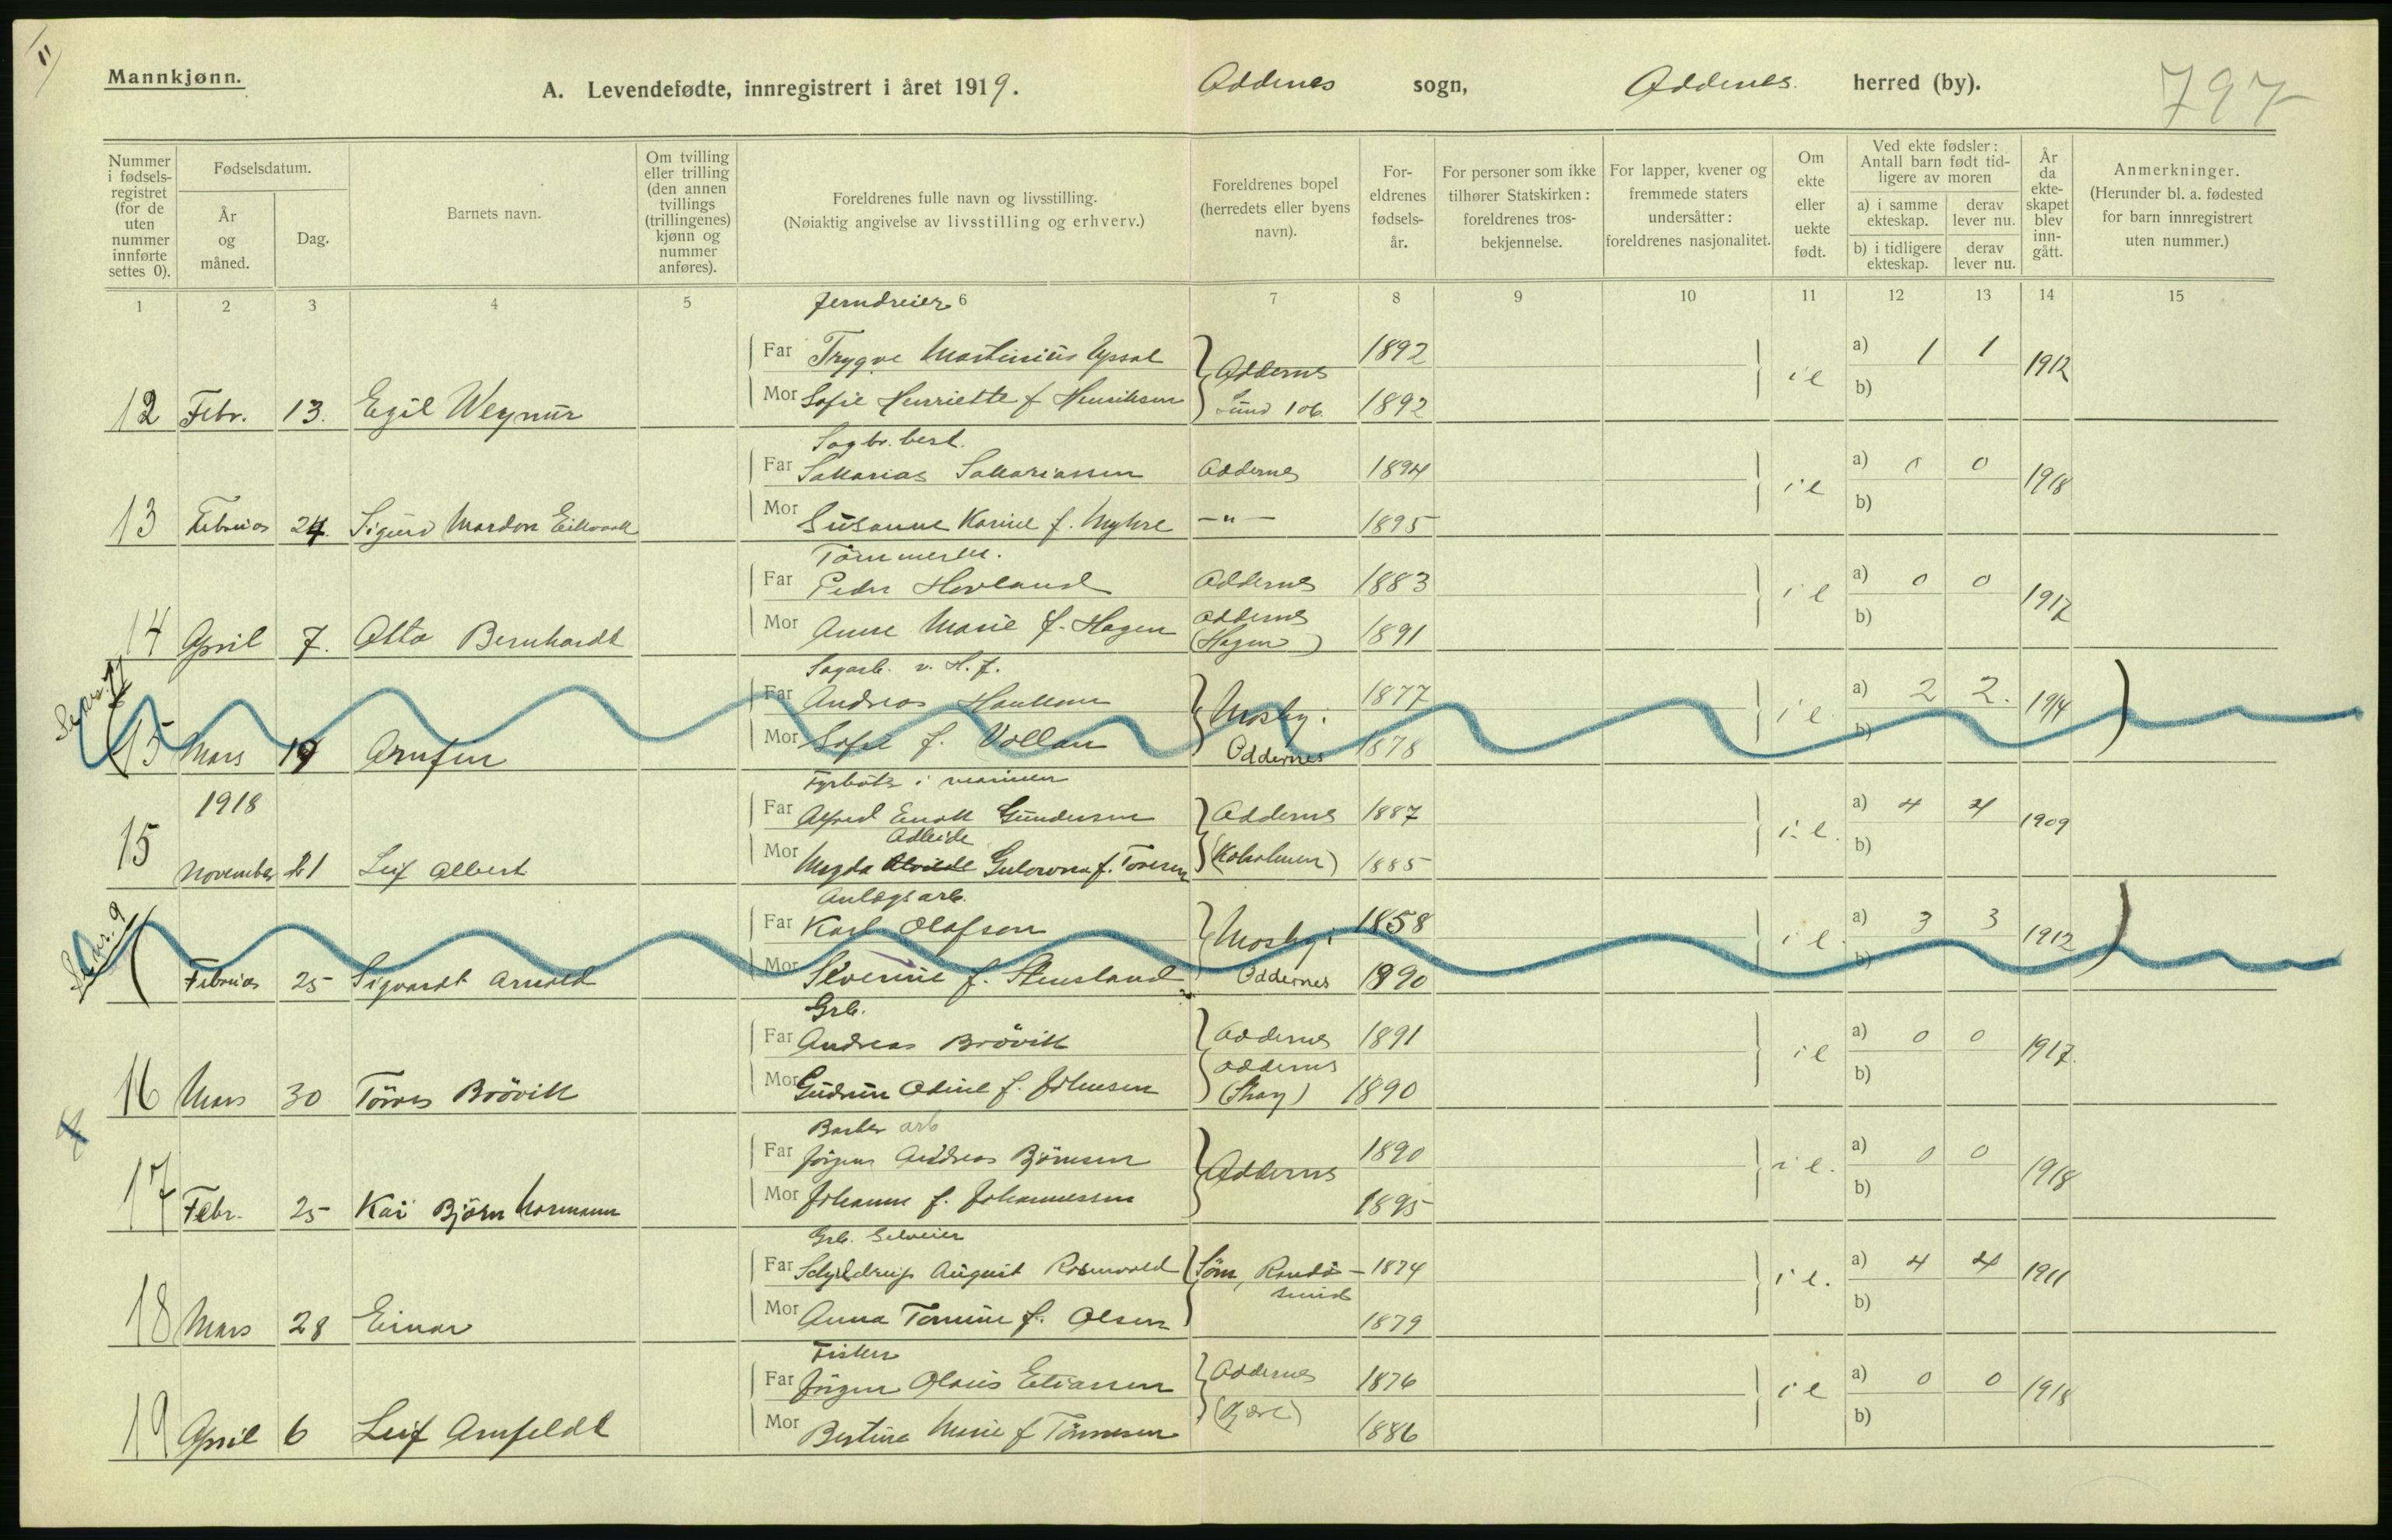 11
Mannkjønn.
A. Levendefødte, innregistrert i året 1919.
Oddernes sogn,
Oddernes herred (by).
797
Nummer i fødsels-registret (for de uten nummer innførte settes 0).
Fødselsdatum.
År og måned.
Dag.
Barnets navn.
Om tvilling eller trilling (den annen tvillings (trillingenes) kjønn og nummer anføres).
Foreldrenes fulle navn og livsstilling.
(Nøiaktig angivelse av livsstilling og erhverv.)
Foreldrenes bopel (herredets eller byens navn).
For-eldrenes fødsels-år.
For personer som ikke tilhører Statskirken: foreldrenes tros-bekjennelse.
For lapper, kvener og fremmede staters undersåtter: foreldrenes nasjonalitet.
Om ekte eller uekte født.
Ved ekte fødsler: Antall barn født tid-ligere av moren
a) i samme ekteskap.
derav lever nu.
b) i tidligere ekteskap.
derav lever nu.
År da ekte-skapet blev inn-gått.
Anmerkninger.
(Herunder bl. a. fødested for barn innregistrert uten nummer.)
1 2 3 4 5 6 7 8 9 10 11 12 13 14 15
Jerndreier
Far Trygve Martinius 1892 a) 1 1
Oddernes i e 1912
12 Febr. 13. Egil Mor Sofie Henriette f Henriksen Lund 106 1892 b)
Sagbr. best.
Far Sakarias Sakariassen Oddernes 1894 a) 0 0
i e 1918
13 Februar 24. Sigurd Mardon Mor Susanne Karine f. Myhre —"— 1895 b)
Tømmerm.
Far Peder Hovland Oddernes 1883 a) 0 0
i e 1917
14 April 7. Otto Bernhardt Mor Anne Marie f. Hagen Oddernes (Hagen) 1891 b)
Sagarb. v. H. f.
Far Andreas 1877 a) 2 2.
Mosby i i e 1914
15 Mars 19 Arnfin Mor Sofie f. Vollan Oddernes 1878 b)
Fyrbøter i marinen
1918
Far Alfred Enok Gundersen Oddernes 1887 a) 4 4
Adleide i e. 1909
15 November 21 Leif Albert Mor Magda f. Toresen (Kolsholmen) 1885 b)
Anlægsarb.
Far Karl Olafsen 1858 a) 3 3
Mosby i i e 1912
Se nr. 9
Februar 25 Sigvardt Arnold Mor Severine f. Stensland Oddernes 1890 b)
Grb.
Far Andreas Brövik Oddernes 1891 a) 0 0
i e 1917.
16 Mars 30 Törres Brövik Mor Gudrun Odine f. Johnsen Oddernes 1890 b)
Barber arb
Far Jörgen Andreas Björnsen 1890 a) 0 0
Oddernes i e. 1918
17 Febr. 25 Kai Björn Normann Mor Johanne f. Johannessen 1895 b)
Grb. Selveier
Far August Rosenvold Söm, Randö-sund 1874 a) 4 4
i e. 1911
18 Mars 28 Einar Mor Anna Tomine f. Olsen 1879 b)
Fisker
Far Jörgen Olaus Eliassen Oddernes 1876 a) 0 0
i e 1918
19 April 6 Leif Arnfeldt Mor Bertine Marie f Tönnesen 1886 b)